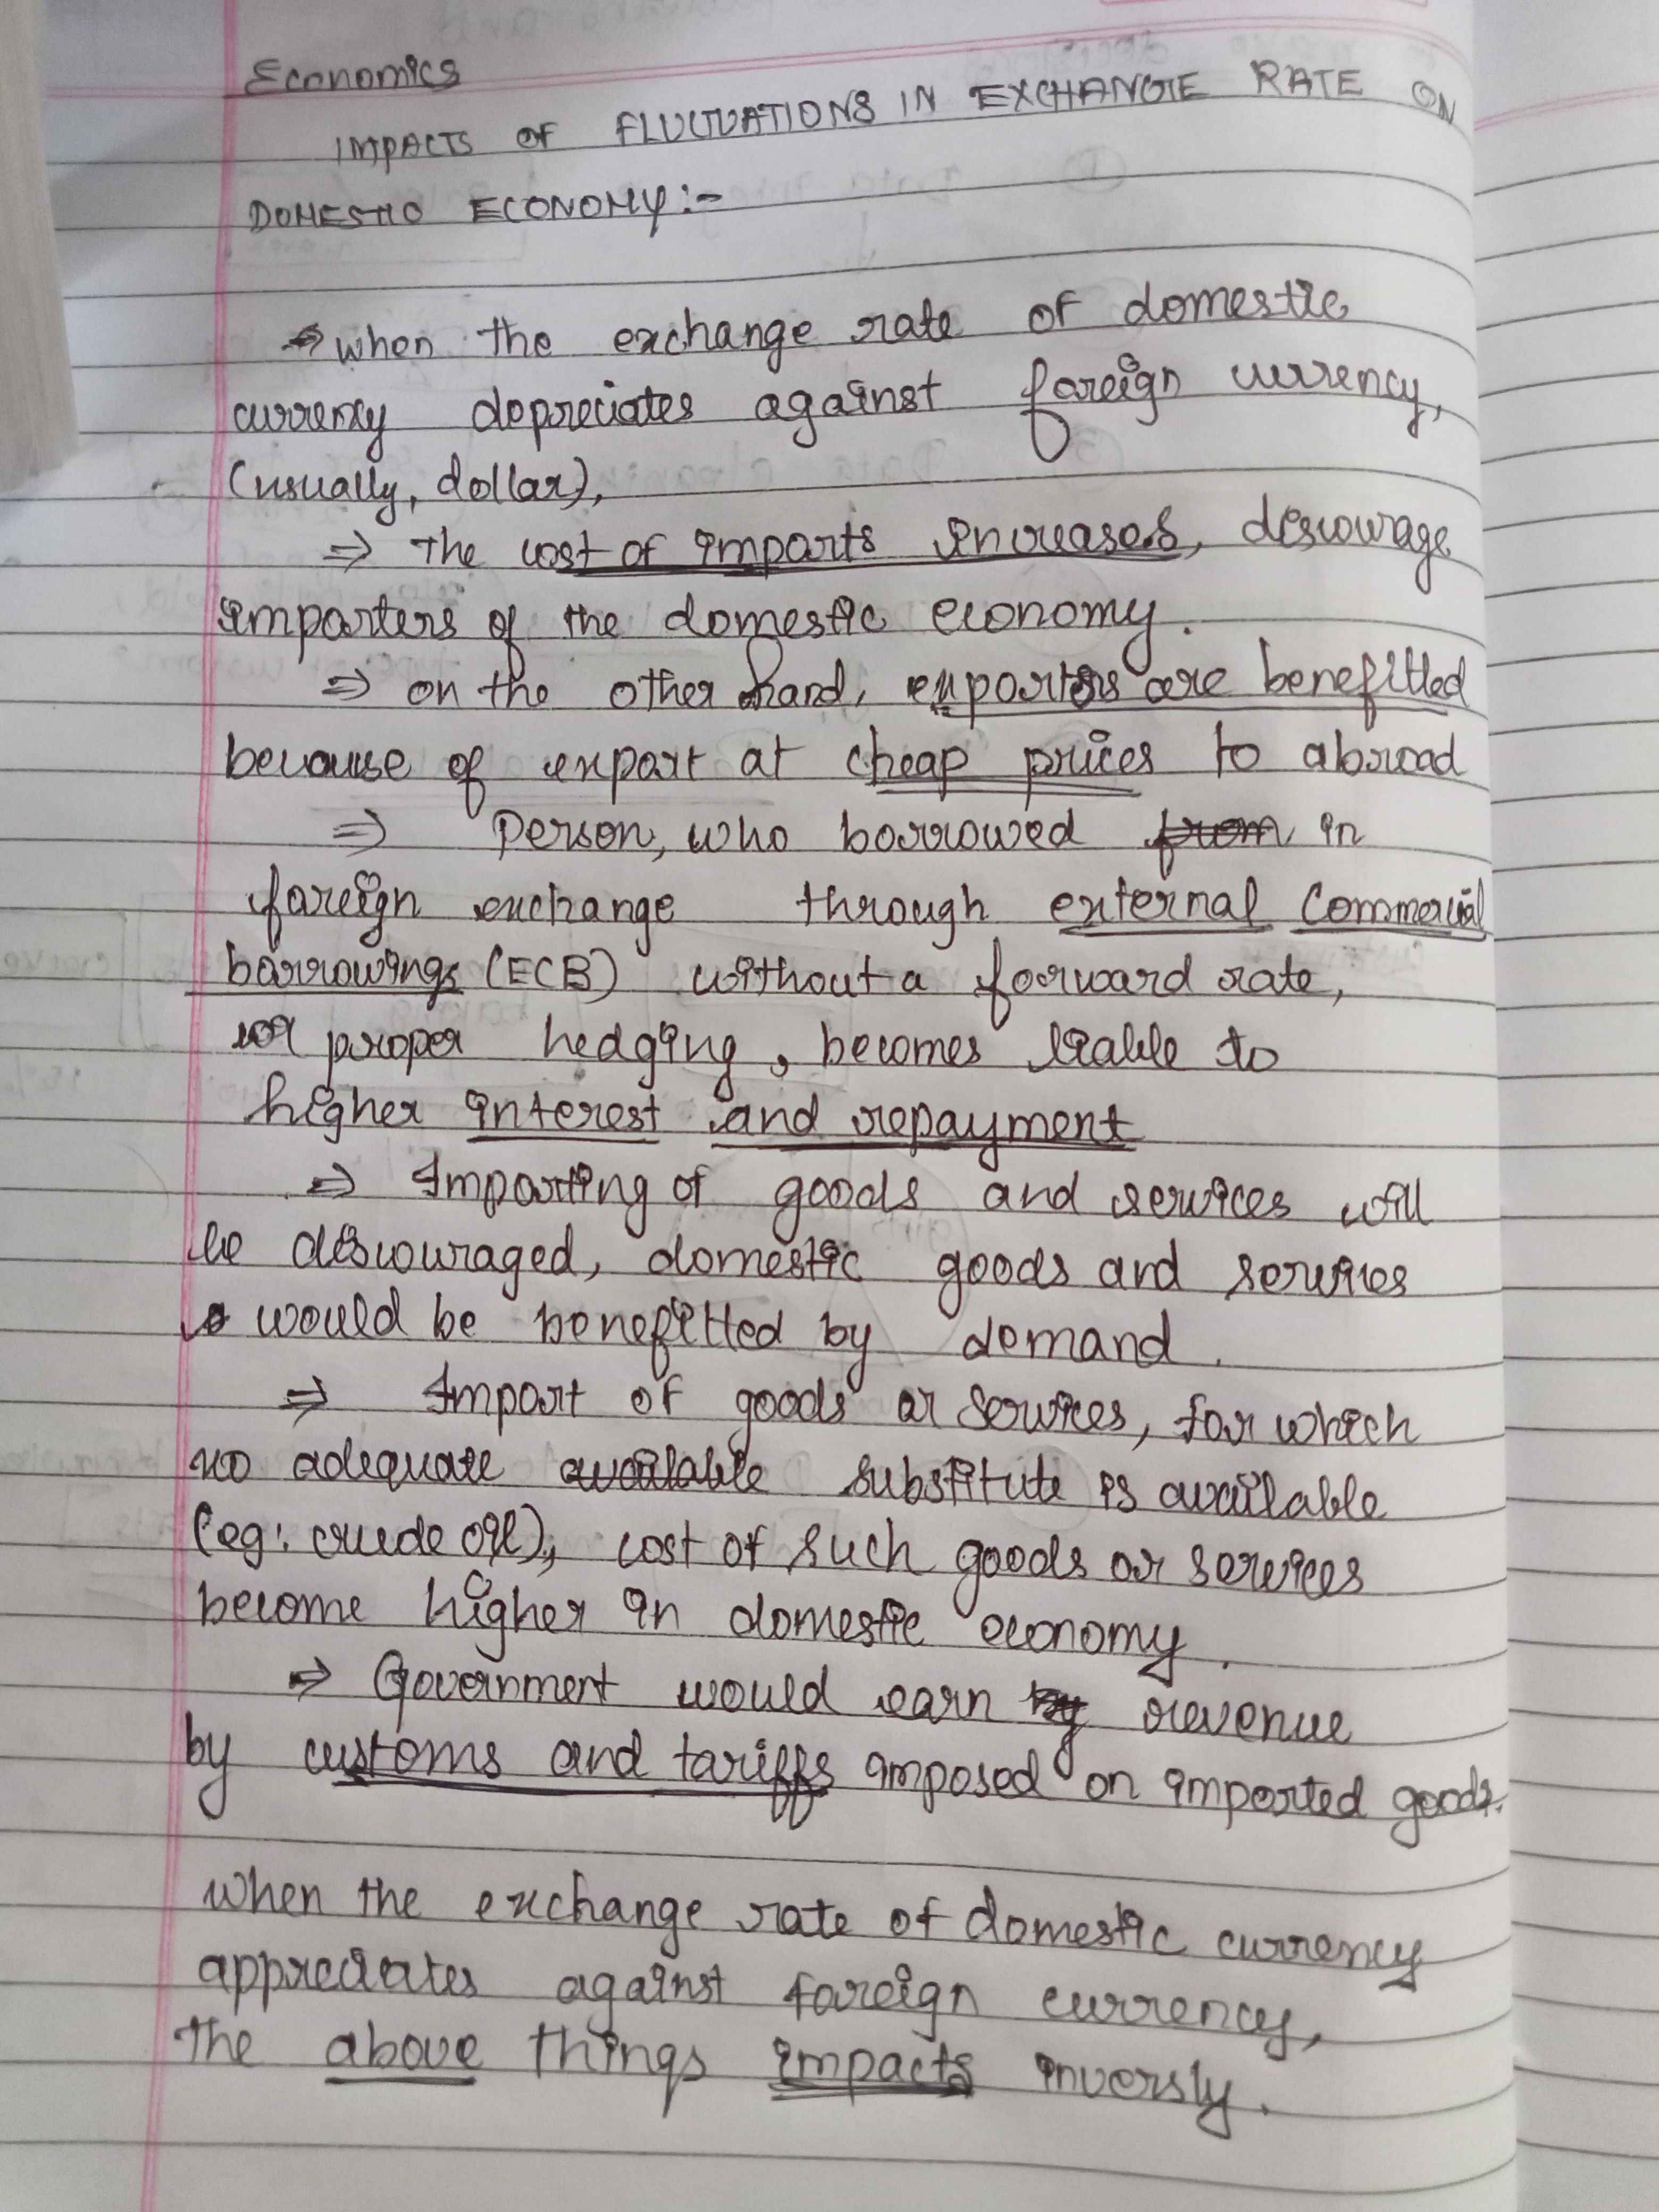 Economics
IMPACTS OF FLUCTUATIONS IN EXCHANGE RATE ON
DOMESTIC ECONOMY:-
when the exchange rate of domestic
currency depreciates against foreign currency,
(usually, dollar),
⇒ The cost of imports increases, discourage
importers of the domestic economy.
⇒ on the other hand, exporters are benefitted
because of export at cheap prices to abroad
⇒ Person, who borrowed from in
foreign exchange through external Commercial
borrowings (ECB) without a forward rate,
or proper hedging, becomes liable to
higher interest and repayment
⇒ Importing of goods and services will
be discouraged, domestic goods and services
would be benefitted by demand.
⇒ Import of goods or services, for which
no adequate available substitute is available
(eg: crude oil), cost of such goods or services
become higher in domestic economy.
⇒ Government would earn by revenue
by customs and tariffs imposed on imported goods.
when the exchange rate of domestic currency
appreciates against foreign currency,
the above things impacts inversly.